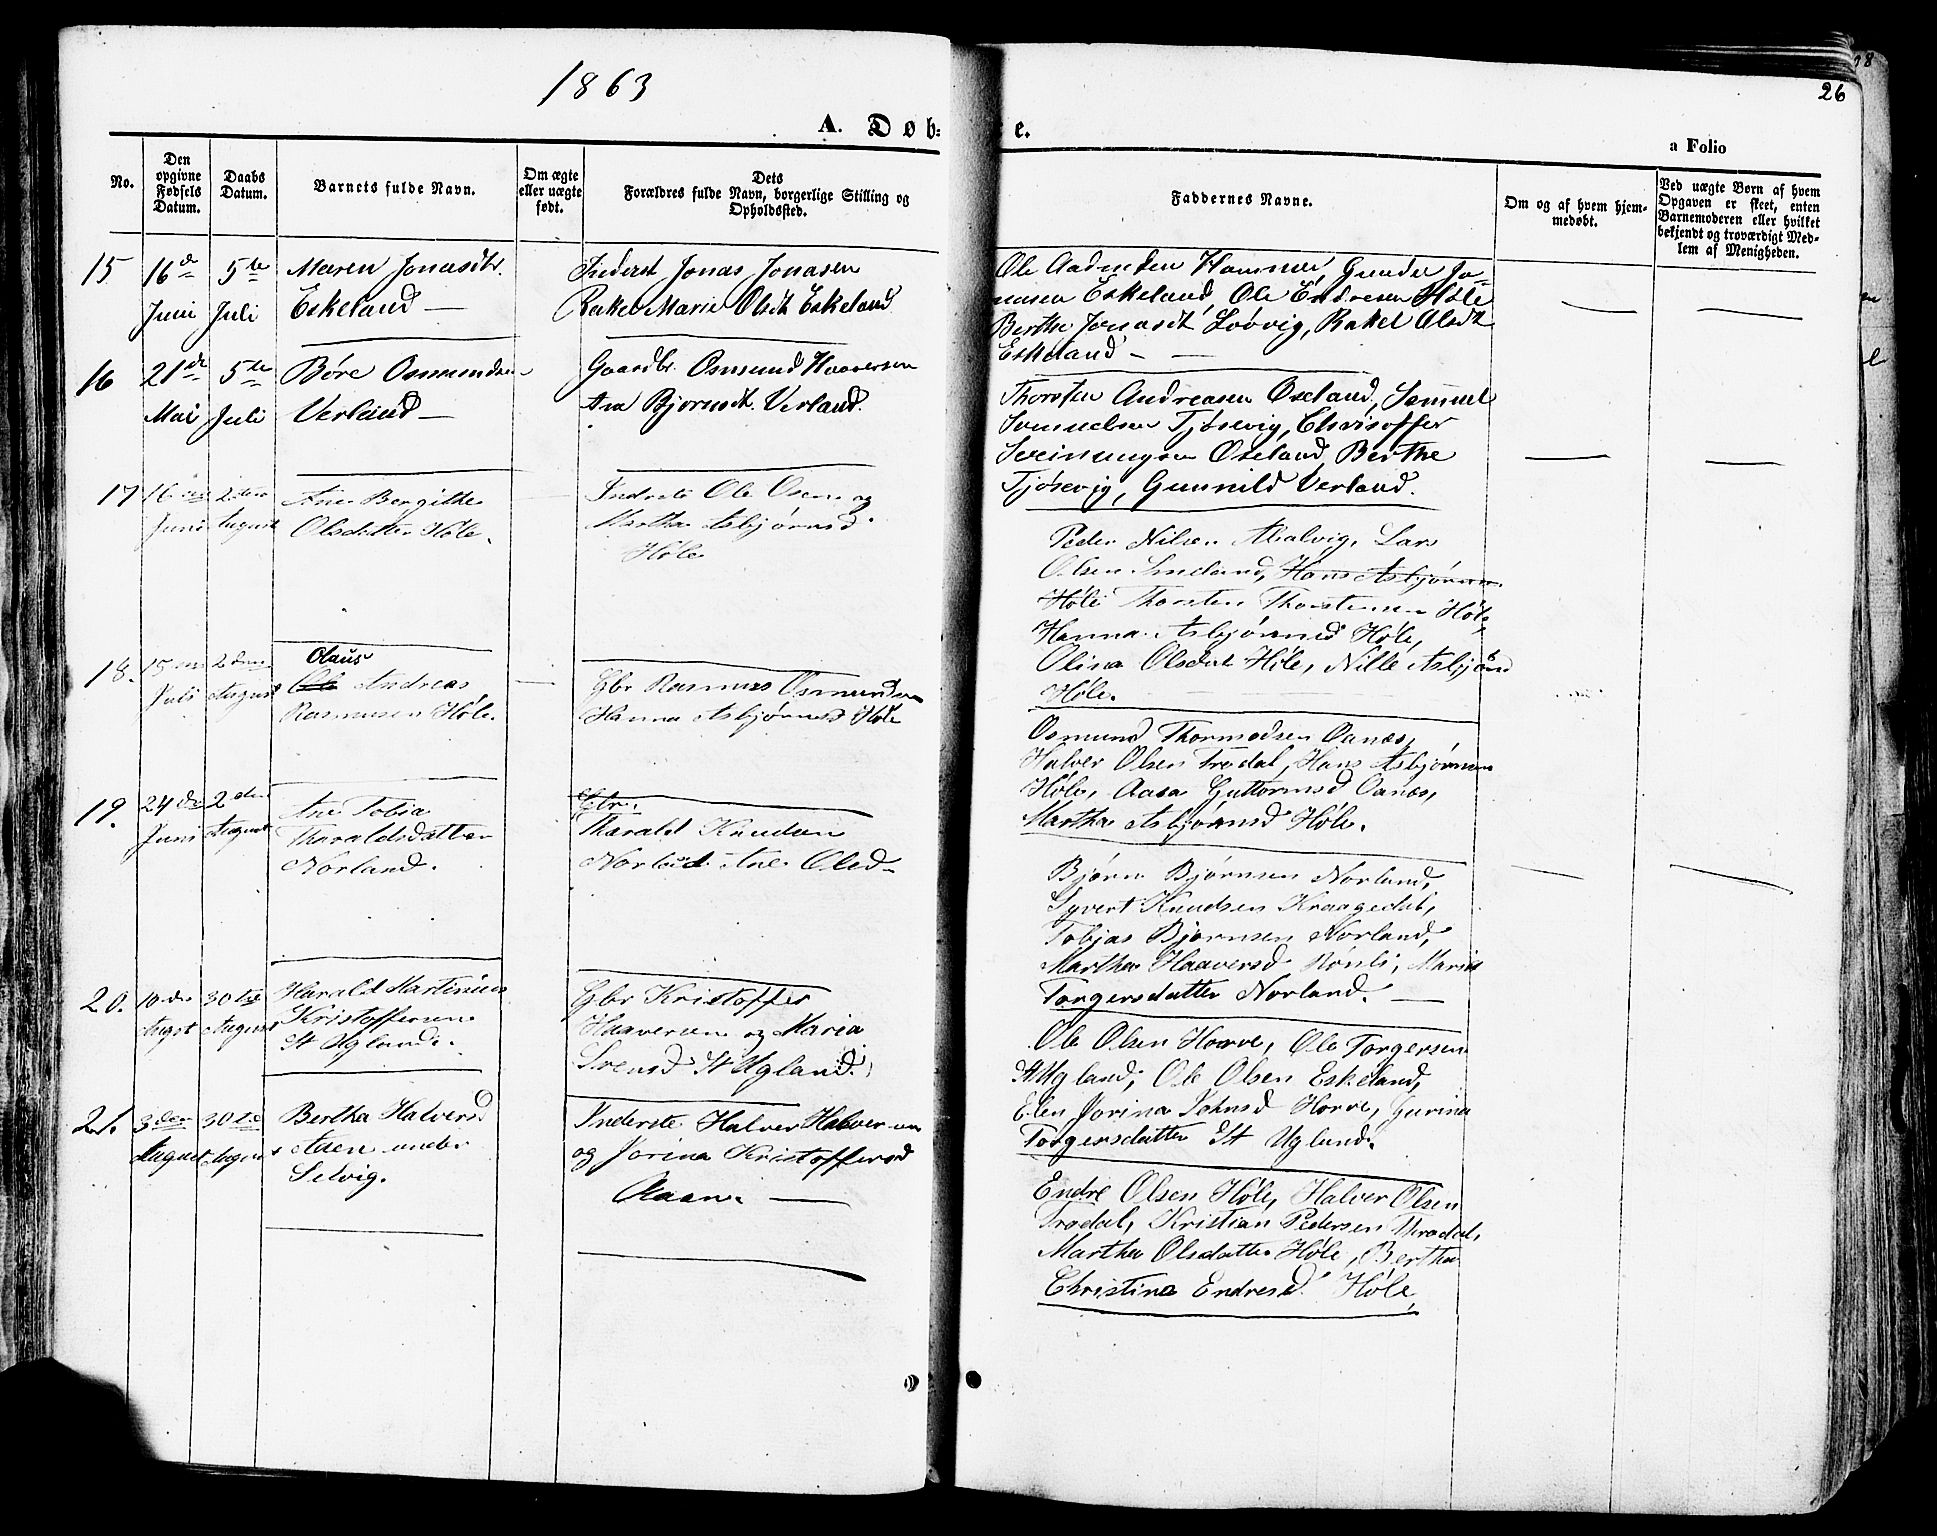 1863
26
A. Døb= e.
a Folio
No.
Den opgivne Fødsels Datum.
Daabs Datum.
Barnets fulde Navn.
Om ægte eller uægte født.
Dets Forældres fulde Navn, borgerlige Stilling og Opholdssted.
Faddernes Navne.
Om og af hvem hjemmedøbt.
Ved uægte Børn af hvem Opgaven er skeet, enten Barnemoderen eller hvilket bekjendt og troværdigt Medlem af Menigheden.
15 16de Juni 5te Juli
Maren Jonasdtr.
Eskeland —
Inderst Jonas Jonasen
Rakel Marie Olsdt Eskeland
Ole Hammer, Gunder Jo=
nasen Eskeland, Ole Endresen Høle
Berthe Jonasdt Løvvig, Rakel Olsdt
Eskeland — —
16 21de Mai 5te Juli
Børe Osmundsen
Verland —
Gaardbr. Osmund Haaversen
Ane Bjornsdt. Verland.
Thorsten Andreasen Oxeland, Samuel
Samuelsen Tjøsevig, Chrisoffer
Sveinungsen Oxeland, Berthe
Tjøsevig, Gunnild Verland.
17 16 Juni 2den August
Ane Bergithe
Olsdatter Høle.
Inderste Ole Osen og
Martha Asbjørnsd.
Høle
Peder Nilsen Lars
Olsen Hans Asbjørnsen
Høle Thorsten Thorstensen Høle,
Hanna Asbjørnsd Høle,
Olina Olsdat Høle, Nille Asbjørnsd
Høle.
18. 15 Juli 2den August
Olaus
Ole Andreas
Rasmusen Høle.
Gbr Rasmus Osmundsen
Hanna Asbjørnsd Høle
Osmund Thormodsen Oanæs,
Halver Olsen Trodal, Hans Asbjørnsen
Høle, Aasa Guttormsd Oanæs,
Martha Asbjørnsd Høle.
19. 24de Juni 2den August
Ane Tobia
Tharaldsdatter
Norland.
Gbr.
Tharald Knudsen
Norland Ane Olsd.
Bjørn Bjørnsen Norland,
Syvert Knudsen Kraagedal,
Tobjas Bjørnsen Norland,
Martha Haaversd Rønli, Maria
Torgersdatter Norland. —
20. 10de Augst 30te August
Harald Martinius
Kristoffersen
St Ugland.
Gbr Kristoffer
Haaversen og Maria
Svensd St Ugland.
Ole Olsen Horve, Ole Torgersen
St Ugland, Ole Olsen Eskeland,
Elen Jorina Johnsd Horve, Gurina
Torgersdatter St Ugland.
21. 3die August 30te August
Bertha Halversd
Aasen under
Selvig.
Inderste Halver Halversen
og Jorina Kristoffersd
Aasen. —
Endre Olsen Høle, Halver Olsen
Trodal, Kristian Pedersen Trodal,
Martha Olsdatter Høle, Bertha
Christina Endresd. Høle,